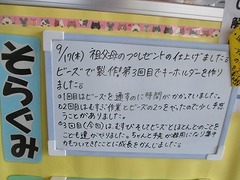 そらぐみ
9/17(木) 祖父母のプレゼントの仕上げをしました。
ビーズで製作第3回目でキーホルダーを作り
ました。
○1回目はビーズを通すのに時間がかかっていました。
○2回目はむすび作業とビーズの2つをやったので少し手思
うことがありました。
○3回目(今回)は、むすびそしてビーズとほとんどのこと
こども達がやりました。ちゃんと手先が器用になり集中
力もついてきたことに成長をかんじました。